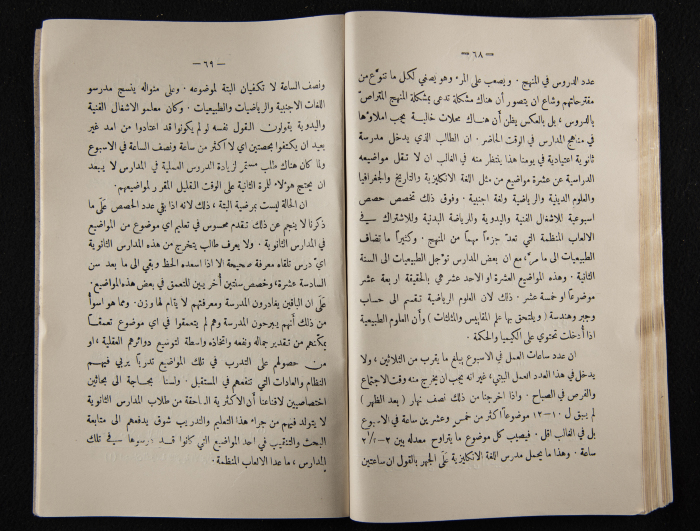 — ٦٨ —
عدد الدروس في المنهج . ويصعب على المرء وهو يصغي لكل ما تنوّع من
مقترحاتهم وشاع ان يتصور أن هناك مشكلة تدعى بمشكلة المنهج المتراصّ
بالدروس ، بل بالعكس يظن أن هنساك محلات خاليسة يجب املاؤها
في مناهج المدارس في الوقت الحاضر . ان الطالب الذي يدخل مدرسة
ثانوية اعتيادية في يومنا هذا ينتظر منه في الغالب ان لا تقل مواضيعه
الدراسية عن عشرة مواضيع من مثل اللغة الانكليزية والتاريخ والجغرافيا
والعلوم الدينية والرياضية ولغة اجنبية . وفوق ذلك تخصص حصص
اسبوعية للاشغال الفنية واليدوية والرياضة البدنية وللاشتراك في
الالعاب المنظمة التي تعدّ جزءاً مهماً من المنهج . وكثيراً ما تضاف
الطبيعيات الى ما مرّ ، مع ان بعض المدارس تؤجل الطبيعيات الى السنة
الثانية . وهذه المواضيع العشرة او الاحد عشر هي بالحقيقة اربعة عشر
موضوعاً او خمسة عشر . ذلك لان العلوم الرياضية تقسم الى حساب
وجبر وهندسة ( ويلتحق بها علم المقاييس والمثلثات ) وأن العلوم الطبيعية
اذا أُدخلت تحتوي على الكيميا والحكمة .
ان عدد ساعات العمل في الاسبوع يبلغ ما يقرب من الثلاثين ، ولا
يدخل في هذا العدد العمل البيتي ، غير انه يجب ان يخرج منه وقت الاجتماع
والفرص في الصباح . واذا اخرجنا من ذلك نصف نهار ( بعد الظهر )
لم يبق ل ١٠-١٢ موضوعاً اكثر من خمس وعشرين ساعة في الاسبوع
بل في الغالب اقل . فيصيب كل موضوع ما يتراوح معدله بين ٢-٢١/٢
ساعة . وهذا ما يحمل مدرس اللغة الانكليزية عَلَى الجهر بالقول ان ساعتين
— ٦٩ —
ونصف الساعة لا تكفيان البتة لموضوعه . وعلى منواله ينسج مدرسو
اللغات الاجنبية والرياضيات والطبيعيات . وكان معلمو الاشغال الفنية
واليدوية يقولون القول نفسه لو لم يكونوا قد اعتادوا من امد غير
بعيد ان يكتفوا بحصتين اي لا اكثر من ساعة ونصف الساعة في الاسبوع
ولما كان هناك طلب مستمر لزيادة الدروس العملية في المدارس لا يبعد
ان يحتج هؤلاء للمرة الثانية على الوقت القليل المقرر لمواضيعهم .
ان الحالة ليست بمرضية البتة ، ذلك لانه اذا بقي عدد الحصص عَلَى ما
ذكرنا لا ينجم عن ذلك تقدم محسوس في تعليم اي موضوع من المواضيع
في المدارس الثانوية . ولا يعرف طالب يتخرج من هذه المدارس الثانوية
ايّ درس تلقاه معرفة صحيحة الا اذا اسعده الحظ وبقي الى ما بعد سن
السادسة عشرة ، وخصص سنتين أُخريين للتعمق في بعض هذه المواضيع .
عَلَى ان الباقين يغادرون المدرسة ومعرفتهم لا يقام لها وزن . ومما هو اسوأ
من ذلك أنهم يبرحون المدرسة وهم لم يتعمقوا في اي موضوع تعمقاً
يمكّنهم من تقدير جماله ونفعه واتخاذه واسطة لتوسيع دوائرهم العقلية ، او
من حصولهم على التدرب في تلك المواضيع تدرباً يربي فيهم
النظام والعادات التي تنفعهم في المستقبل . ولسنا بحاجة الى مباحثين
اختصاصيين لاقناعنا أن الاكثرية الساحقة من طلاب المدارس الثانوية
لا يتولد فيهم من جراء هذا التعليم والتدريب شوق يدفعهم الى متابعة
البحث والتنقيب في احد المواضيع التي كانوا قد درسوها في تلك
المدارس ، ما عدا الالعاب المنظمة .